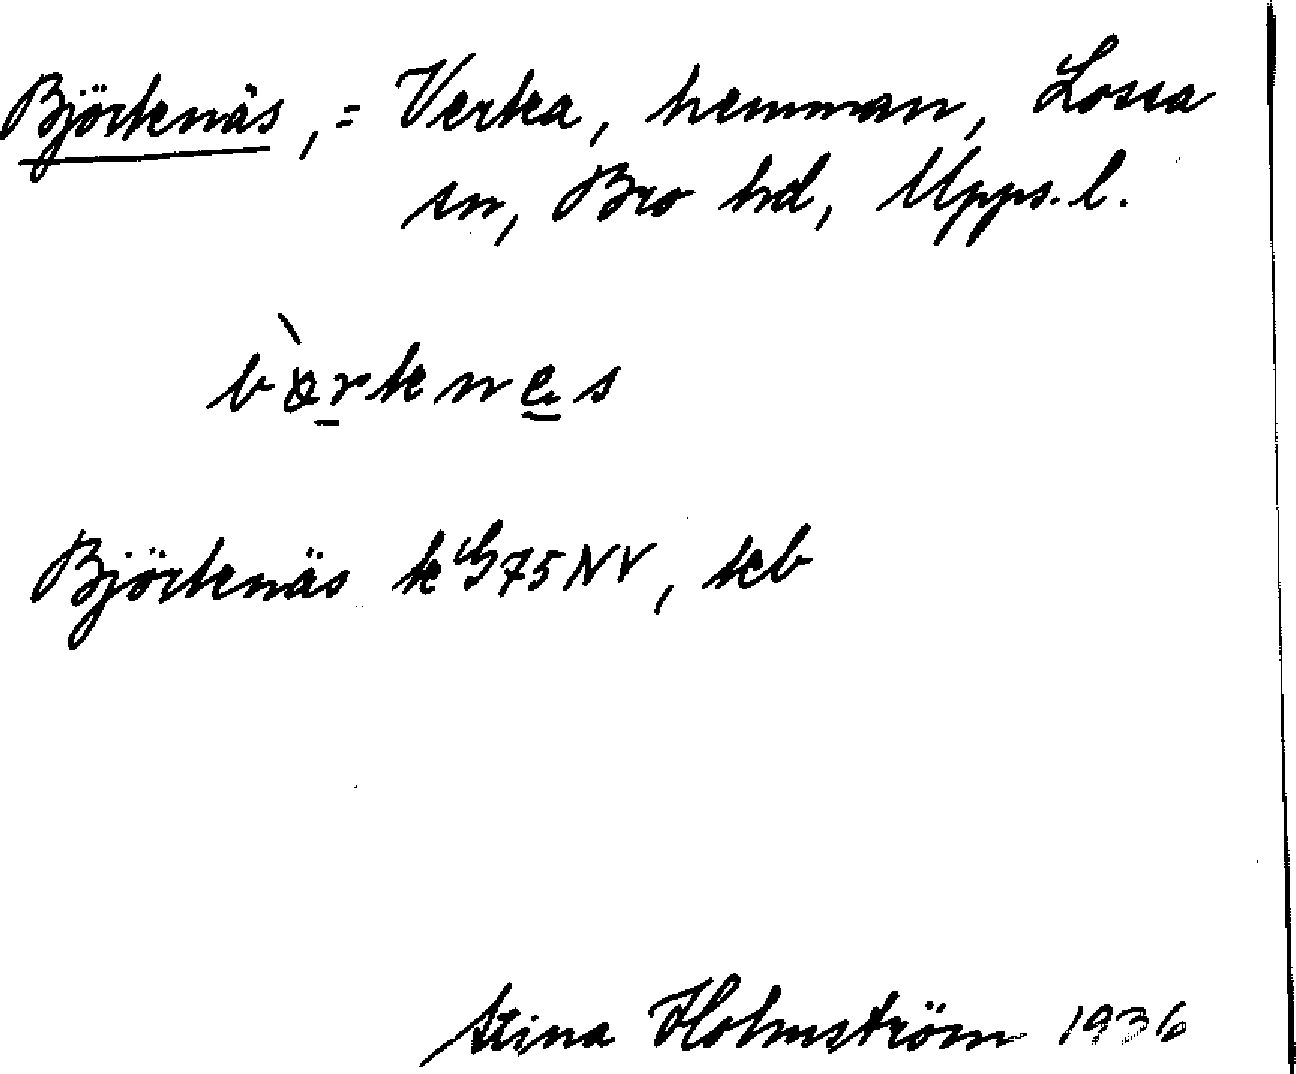 Björknäs, = Verka, hemman, Lossa
sn, Bro hd, Upps. l.
bò̤rknes
Björknäs k G 75 NV, kb
Stina Holmström 1936